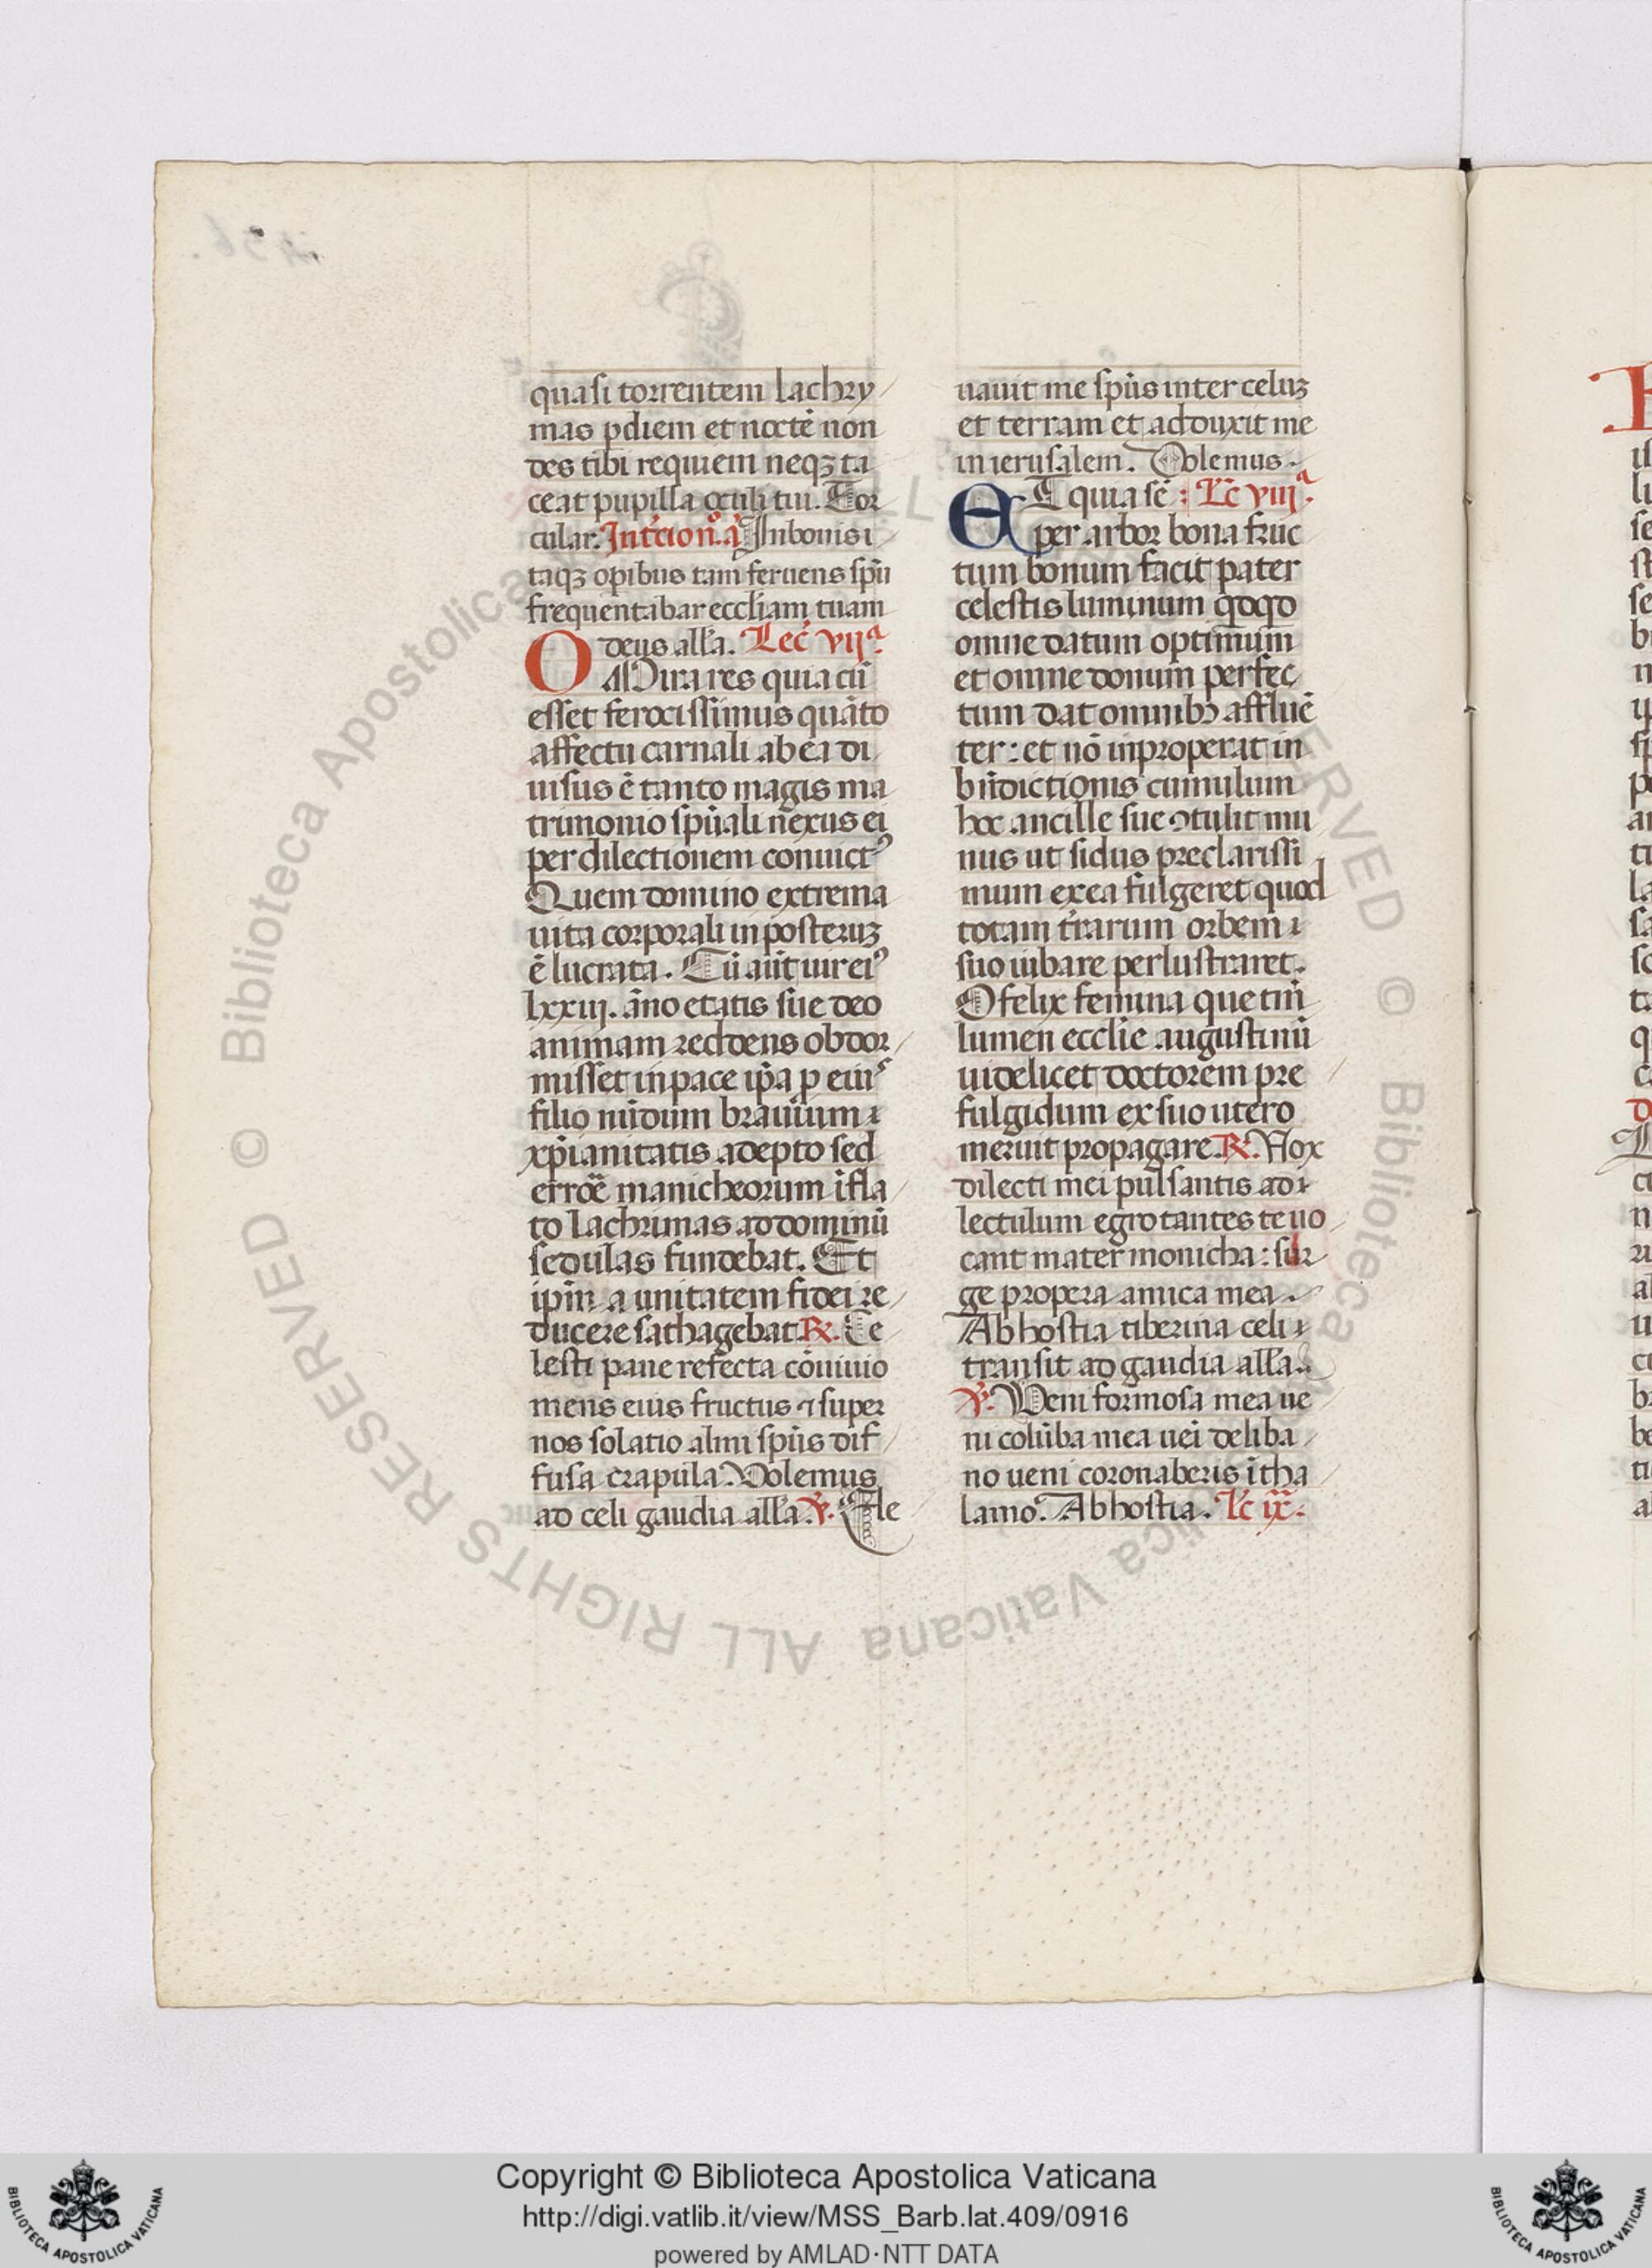 quasi torrentem lachry
mas ꝑ diem et noctē non
des tibi requiem neqꝫ ta
ceat pupilla oculi tui. Tor
cular. Int̄cion.ᵒ a᷎ In bonis i
taqꝫ opibus tam feruens sp̄u
frequentabar eccl̄iam tuam
deus all'a. Lec̄ vijᵃ.
O Mira res quia cū
esset ferocissimus quāto
affectu carnali ab ea di
uisus ē tanto magis ma
trimonio sp̄uali nexus ei
per dilectionem conuictꝰ
Quem domino extrema
uita corporali in posteruꝫ
ē lucrata. Cū aūt uir eiꝰ
lxxiij. āno etatis sue deo
animam reddens obdor
misset in pace ip̄a ꝓ eiuˢ
filio nūdum brauium ı
xp̄ianitatis adepto sed
erroē manicheorum īfla
to lachrimas ad dominū
sedulas fundebat. Et
ip̄m a unitatem fidei re
ducere sathagebat. ℟. Ce
lesti pane refecta cōuiuio
mens eius fructus ⁊ super
nos solatio almi sp̄us dif
fusa crapula. Volemus
ad celi gaudia all'a. ℣. Ele
uauit me sp̄us inter celuꝫ
et terram et adduxit me
in ierusalem. Volemus.
ET quia sē : Lc̄ viijᵃ.
per arbor bona fruc
tum bonum facit pater
celestis luminum q̄ q̄
omne datum optimum
et omne donum perfec
tum dat omnibꝫ affluē
ter: et nō inproperat in
bn̄dictionis cumulum
hoc ancille sue ꝯtulit mu
nus ut sidus preclarissi
mum ex ea fulgeret quod
totam t̄rarum orbem ı
suo iubare perlustraret.
O felix femina que tm̄
lumen eccl̄ie augustinū
uidelicet doctorem pre
fulgidum ex suo utero
meruit propagare. ℟. Vox
dilecti mei pulsantis ad ı
lectulum egrotantes te uo
cant mater monicha: sur
ge propera amica mea.
Ab hostia tiberina celi ı
transit ad gaudia all'a.
℣. Veni formosa mea ue
ni colūba mea uēi de liba
no ueni coronaberis ī tha
lamo. Ab hostia. Lc̄ ix.
© Biblioteca Apostolica Vaticana ALL RIGHTS RESERVED
Copyright © Biblioteca Apostolica Vaticana
http://digi.vatlib.it/view/MSS_Barb.lat.409/0916
powered by AMLAD·NTT DATA
BIBLIOTECA APOSTOLICA VATICANA
BIBLIOTECA APOSTOLICA VATICANA